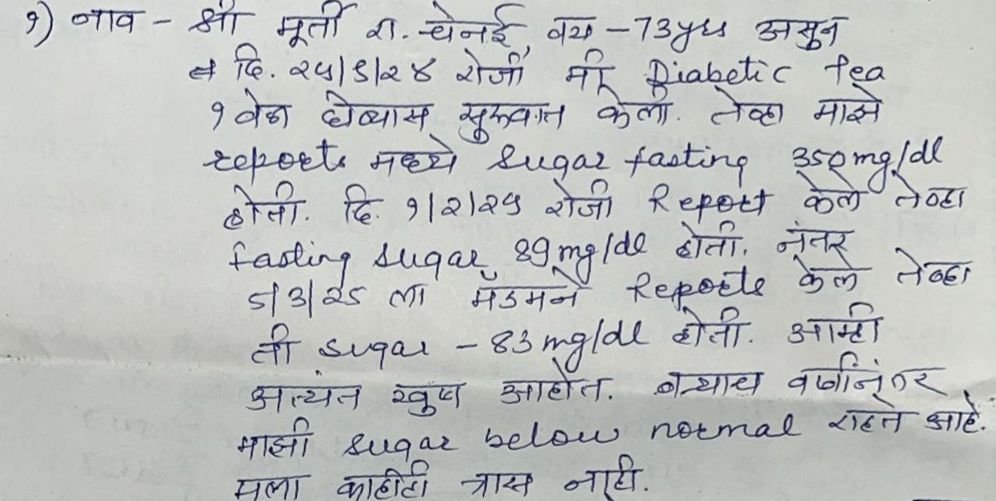 १) नाव - श्री मूर्ती रा. चेनई, वय - 73yrs असुन
दि. २५/९/२४ रोजी मी Diabetic Tea
१ वेळ घेण्यास सुरुवात केली. तेव्हा माझे
reports मध्ये Sugar fasting 350mg/dl
होती. दि. १/२/२५ रोजी Report केले तेव्हा
fasting sugar 89mg/dl होती. नंतर
5/3/25 ला मॅडमने Reports केले तेव्हा
ती sugar - 83 mg/dl होती. आम्ही
अत्यंत खुष आहोत. बऱ्याच वर्षांनंतर
माझी sugar below normal राहते आहे.
मला काहीही त्रास नाही.